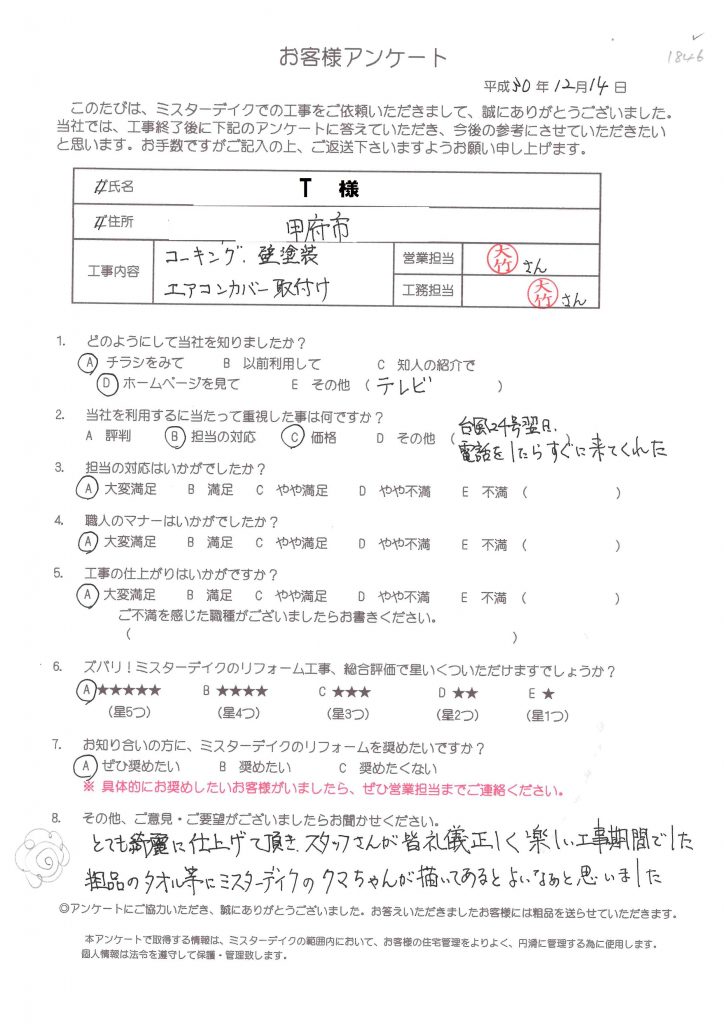 1846
お客様アンケート
平成30年12月14日
このたびは、ミスターデイクでの工事をご依頼いただきまして、誠にありがとうございました。
当社では、工事終了後に下記のアンケートに答えていただき、今後の参考にさせていただきたい
と思います。お手数ですがご記入の上、ご返送下さいますようお願い申し上げます。
氏名 T 様
住所 甲府市
工事内容 コーキング、壁塗装 営業担当 大竹さん
エアコンカバー取付け 工務担当 大竹さん
1. どのようにして当社を知りましたか？
A チラシをみて B 以前利用して C 知人の紹介で
D ホームページを見て E その他 （テレビ ）
2. 当社を利用するに当たって重視した事は何ですか？
A 評判 B 担当の対応 C 価格 D その他 （台風24号翌日、
電話をしたらすぐに来てくれた
3. 担当の対応はいかがでしたか？
A 大変満足 B 満足 C やや満足 D やや不満 E 不満 （ ）
4. 職人のマナーはいかがでしたか？
A 大変満足 B 満足 C やや満足 D やや不満 E 不満 （ ）
5. 工事の仕上がりはいかがですか？
A 大変満足 B 満足 C やや満足 D やや不満 E 不満 （ ）
ご不満を感じた職種がございましたらお書きください。
（ ）
6. ズバリ！ミスターデイクのリフォーム工事、総合評価で星いくついただけますでしょうか？
A ★★★★★ B ★★★★ C ★★★ D ★★ E ★
（星5つ） （星4つ） （星3つ） （星2つ） （星1つ）
7. お知り合いの方に、ミスターデイクのリフォームを奨めたいですか？
A ぜひ奨めたい B 奨めたい C 奨めたくない
※ 具体的にお奨めしたいお客様がいましたら、ぜひ営業担当までご連絡ください。
8. その他、ご意見・ご要望がございましたらお聞かせください。
とても綺麗に仕上げて頂き、スタッフさんが皆礼儀正しく楽しい工事期間でした
粗品のタオル等にミスターデイクのクマちゃんが描いてあるとよいなぁと思いました
◎アンケートにご協力いただき、誠にありがとうございました。お答えいただきましたお客様には粗品を送らせていただきます。
本アンケートで取得する情報は、ミスターデイクの範囲内において、お客様の住宅管理をよりよく、円滑に管理する為に使用します。
個人情報は法令を遵守して保護・管理致します。